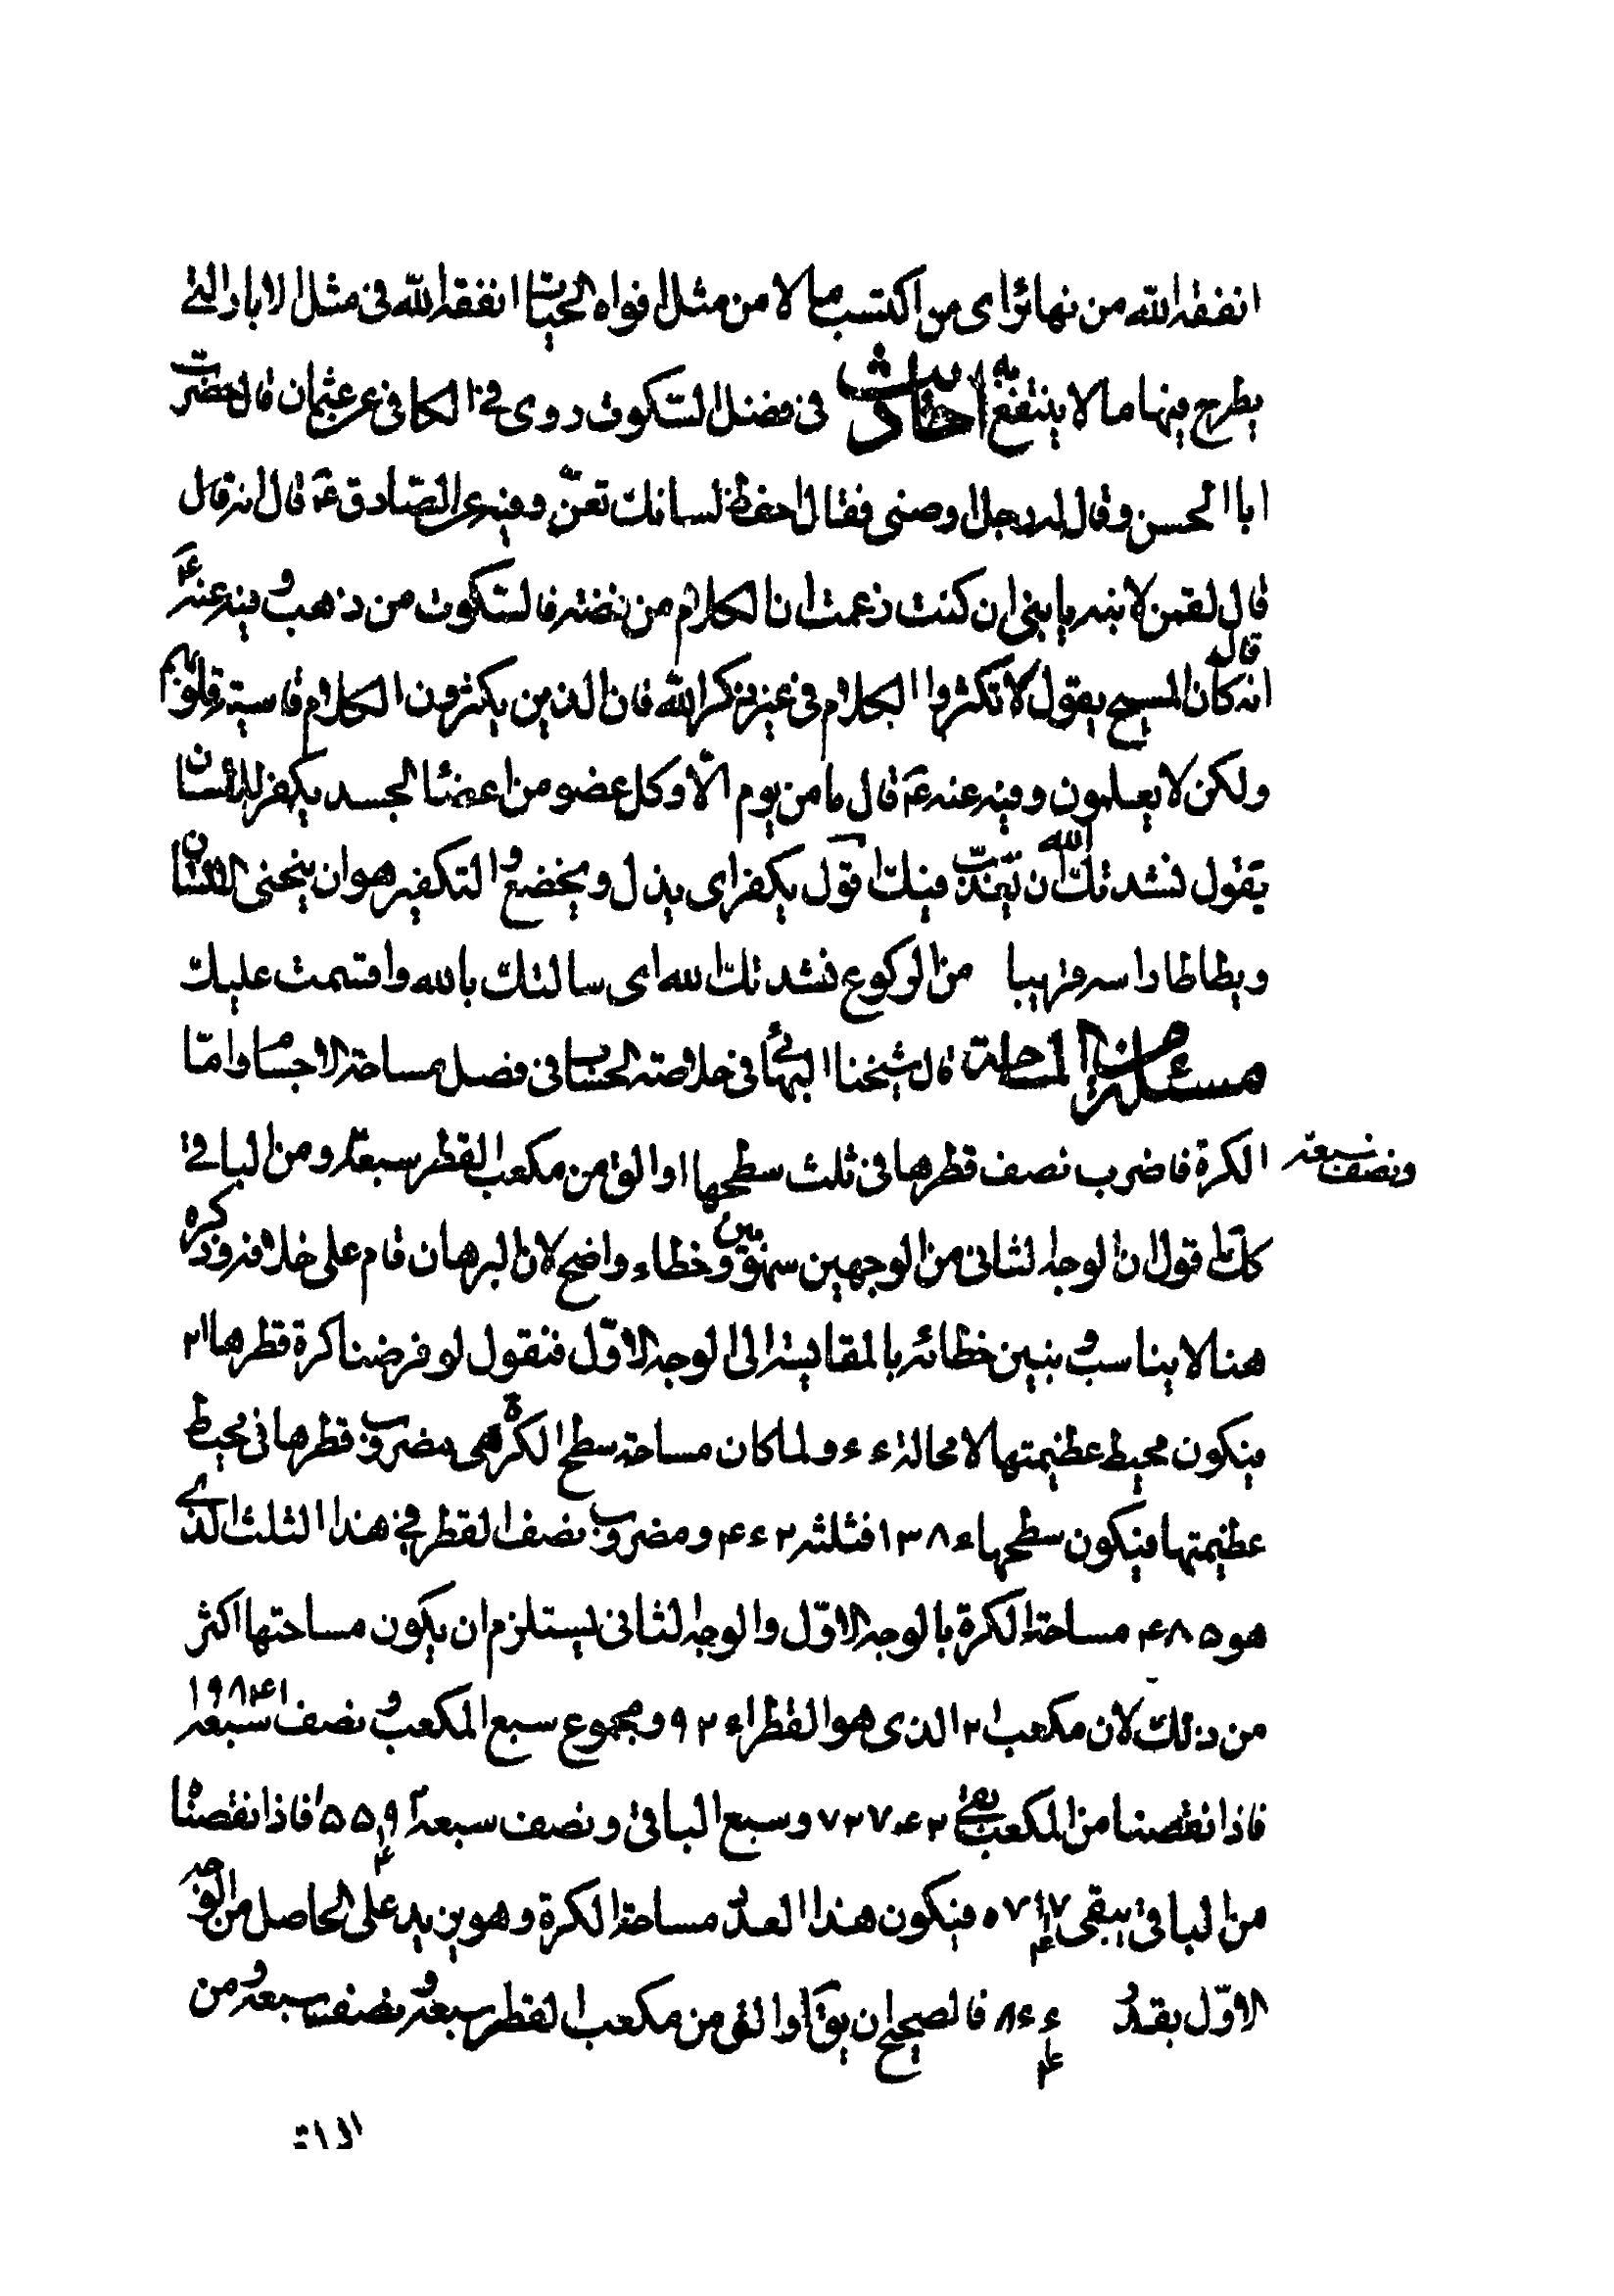 انفقه الله من نهابر اى من اكتسب مالا من مثل افواه الحيات انفقه الله فى مثل الابار التى
يطرح فيها ما لا ينتفع به احاديث فى فضل السكوت روى فى الكافى عن عثمان قال حضرت
ابا الحسن وقال له رجل اوصنى فقال احفظ لسانك تعزّ وفيه عن الصّادق ع قال انه قال
قال لقمن لابنه يا بنى ان كنت زعمت ان الكلام من فضة فالسّكوت من ذهب وفيه عنه ع
انه قال كان المسيح يقول لا تكثروا الكلام فى غير ذكر الله فان الذين يكثرون الكلام قاسية قلوبهم
ولكن لا يعلمون وفيه عنه ع قال ما من يوم الّا وكل عضو من اعضاء الجسد يكفر للسان
يقول نشدتك الله ان نعذّب فيك اقول يكفر اى يذل ويخضع والتكفير هو ان ينحنى الانسان
ويطاطا راسه قريبا من الركوع نشدتك الله اى سالتك بالله واقسمت عليك
مسئلة من المساحة قال شيخنا البهائى فى خلاصة الحساب فى فصل مساحة الاجسام وامّا
الكرة فاضرب نصف قطرها فى ثلث سطحها او الق من مكعب القطر سبعه ومن الباقى
ونصف سبعه
كك اقول ان الوجه الثانى من الوجهين سهو بين وخطاء واضح لان البرهان قام على خلافه وذكره
هنا لا يناسب ونبين خطائه بالمقايسة الى الوجه الاوّل فنقول لو فرضنا كرة قطرها ٢١
فيكون محيط عظيمتها لا محالة ٤٤ ولما كان مساحة سطح الكرة هى مضروب قطرها فى محيط
عظيمتها فيكون سطحها ١٣٨٤ فثلثه ٤٤٢ ومضروب نصف القطر فى هذا الثلث الذى
هو ٤٨٥ مساحة الكرة بالوجه الاوّل والوجه الثانى يستلزم ان يكون مساحتها اكثر
من ذلك لان مكعب ٢١ الذى هو القطر ٩٢٤١ ومجموع سبع المكعب ونصف سبعه
فاذا نقصنا من المكعب بقى ٧٢٧٤٢ وسبع الباقى ونصف سبعه فاذا نقصناه
من الباقى يبقى فيكون هذا العدد مساحة الكرة وهو يزيد على الحاصل من الوجه
الاوّل بقدر فالصحيح ان يقال او الق من مكعب القطر سبعه ونصف سبعه ومن